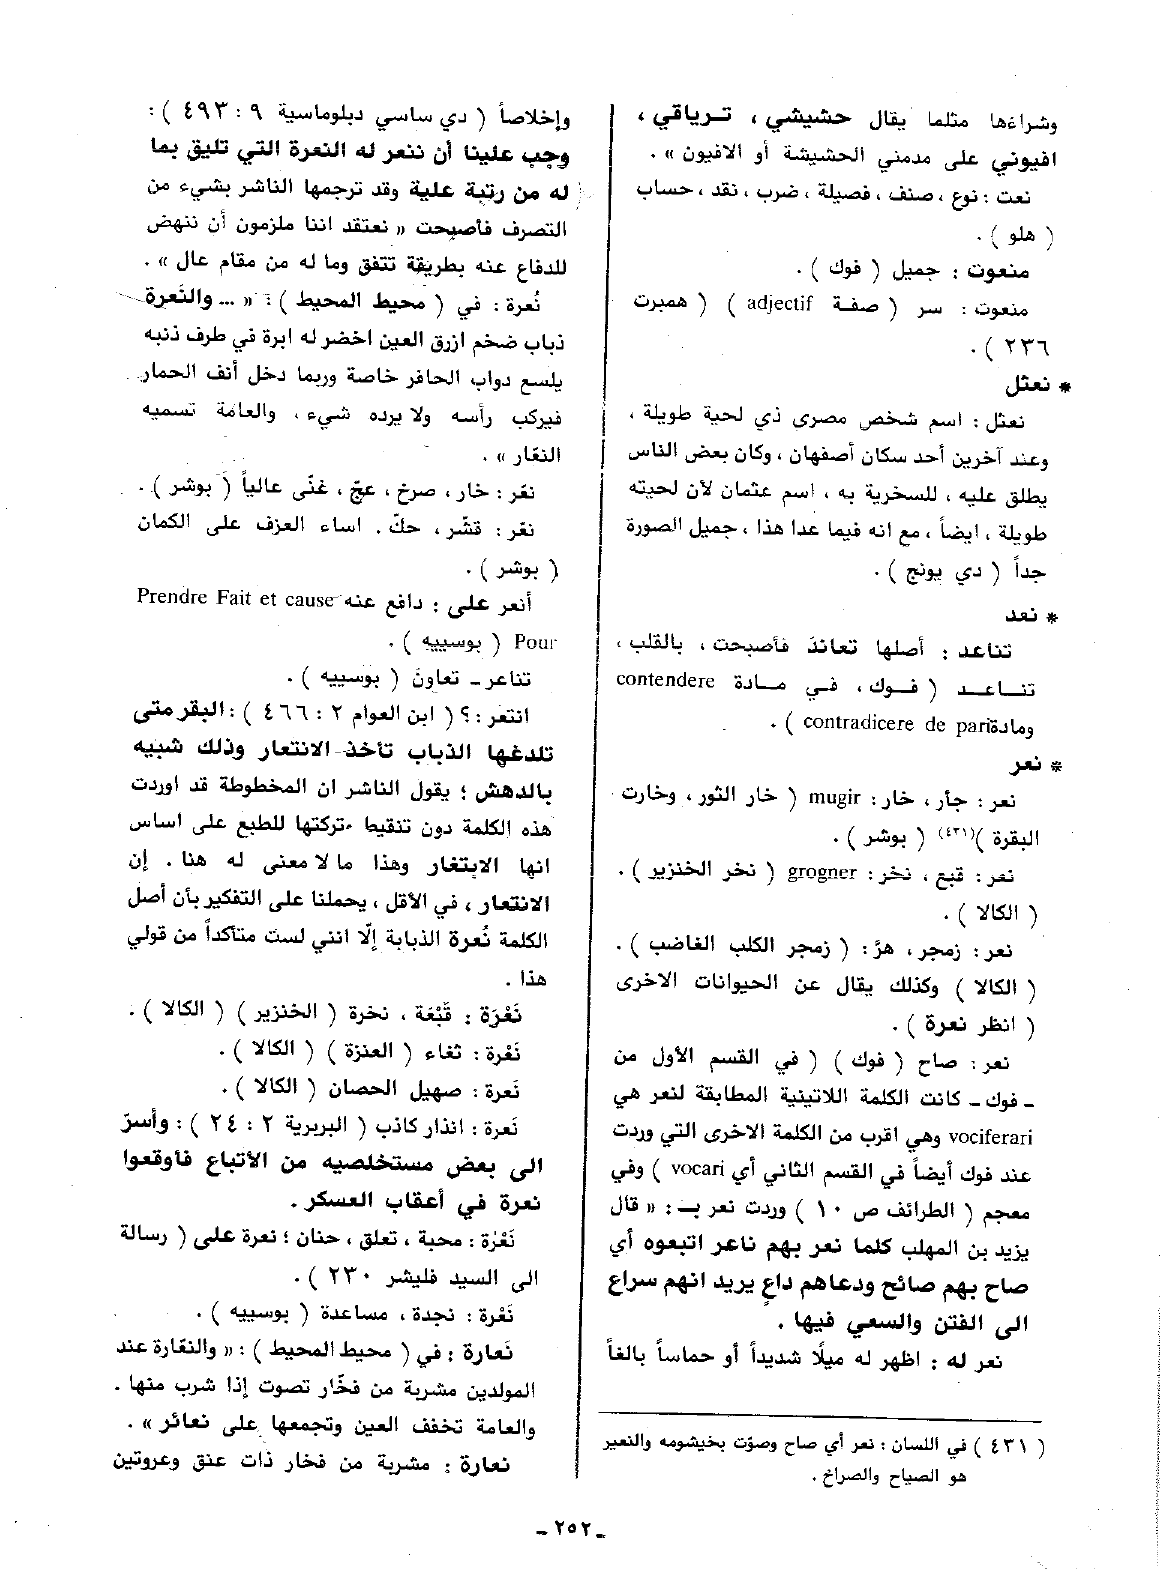 وشراءها مثلما يقال حشيشي ، ترياقي ،
افيوني على مدمني الحشيشة أو الافيون » .
نعت : نوع ، صنف ، فصيلة ، ضرب ، نقد ، حساب
( هلو ) .
منعوت : جميل ( فوك ) .
منعوت : سر ( صفة adjectif ) ( همبرت
٢٣٦ ) .
* نعثل
نعثل : اسم شخص مصرى ذي لحية طويلة ،
وعند آخرين أحد سكان أصفهان ، وكان بعض الناس
يطلق عليه ، للسخرية به ، اسم عثمان لأن لحيته
طويلة ، ايضاً ، مع انه فيما عدا هذا ، جميل الصورة
جداً ( دي يونج ) .
* نعد
تناعد : أصلها تعاند فأصبحت ، بالقلب ،
تناعد ( فوك ، في مادة contendere
ومادة contradicere de pari ) .
* نعر
نعر : جأر ، خار : mugir ( خار الثور ، وخارت
البقرة )(٤٣١) ( بوشر ) .
نعر : قبع ، نخر : grogner ( نخر الخنزير ) .
( الكالا ) .
نعر : زمجر ، هرّ : ( زمجر الكلب الغاضب ) .
( الكالا ) وكذلك يقال عن الحيوانات الاخرى
( انظر نعرة ) .
نعر : صاح ( فوك ) ( في القسم الأول من
ـ فوك ـ كانت الكلمة اللاتينية المطابقة لنعر هي
vociferari وهي اقرب من الكلمة الاخرى التي وردت
عند فوك أيضاً في القسم الثاني أي vocari ) وفي
معجم ( الطرائف ص ١٠ ) وردت نعر بـ : « قال
يزيد بن المهلب كلما نعر بهم ناعر اتبعوه أي
صاح بهم صائح ودعاهم داعٍ يريد انهم سراع
الى الفتن والسعي فيها .
نعر له : اظهر له ميلًا شديداً أو حماساً بالغاً
( ٤٣١ ) في اللسان : نعر أي صاح وصوّت بخيشومه والنعير
هو الصياح والصراخ .
وإخلاصاً ( دي ساسي دبلوماسية ٩ : ٤٩٣ ) :
وجب علينا أن ننعر له النعرة التي تليق بما
له من رتبة علية وقد ترجمها الناشر بشيء من
التصرف فأصبحت « نعتقد اننا ملزمون أن ننهض
للدفاع عنه بطريقة تتفق وما له من مقام عال » .
نُعرة : في ( محيط المحيط ) : « ... والنَعرة
ذباب ضخم ازرق العين اخضر له ابرة في طرف ذنبه
يلسع دواب الحافر خاصة وربما دخل أنف الحمار
فيركب رأسه ولا يرده شيء ، والعامة تسميه
النعّار » .
نعّر : خار ، صرخ ، عجّ ، غنّى عالياً ( بوشر ) .
نعّر : قشّر ، حكّ . اساء العزف على الكمان
( بوشر ) .
أنعر على : دافع عنه Prendre Fait et cause
Pour ( بوسييه ) .
تناعر ـ تعاون ( بوسييه ) .
انتعر : ؟ ( ابن العوام ٢ : ٤٦٦ ) : البقر متى
تلدغها الذباب تأخذ الانتعار وذلك شبيه
بالدهش ؛ يقول الناشر ان المخطوطة قد اوردت
هذه الكلمة دون تنقيط تركتها للطبع على اساس
انها الابتغار وهذا ما لا معنى له هنا . إن
الانتعار ، في الأقل ، يحملنا على التفكير بأن أصل
الكلمة نُعرة الذبابة إلّا انني لست متأكداً من قولي
هذا .
نَعْرَة : قَبْعَة ، نخرة ( الخنزير ) ( الكالا ) .
نَعْرة : ثغاء ( العنزة ) ( الكالا ) .
نَعرة : صهيل الحصان ( الكالا ) .
نَعرة : انذار كاذب ( البربرية ٢ : ٢٤ ) : وأسرّ
الى بعض مستخلصيه من الأتباع فأوقعوا
نعرة في أعقاب العسكر .
نَعْرَة : محبة ، تعلق ، حنان ؛ نعرة على ( رسالة
الى السيد فليشر ٢٣٠ ) .
نَعْرة : نجدة ، مساعدة ( بوسييه ) .
نَعارة : في ( محيط المحيط ) : « والنعّارة عند
المولدين مشربة من فخّار تصوت إذا شرب منها .
والعامة تخفف العين وتجمعها على نعائر » .
نعارة : مشربة من فخار ذات عنق وعروتين
ـ ٢٥٢ ـ